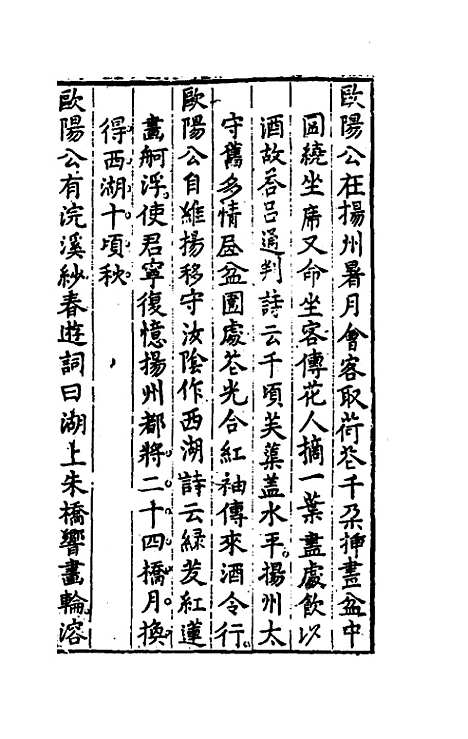 歐陽公在揚州暑月會客取荷花千朵揷畫盆中
圍繞坐席又命坐客傳花人摘一葉盡處飲以
酒故荅呂通判詩云千頃芙蕖盖水平揚州太
守舊多情畫盆圍處花光合紅袖傳來酒令行
歐陽公自維揚移守汝陰作西湖詩云綠芰紅蓮
畫舸浮使君寧復憶揚州都將二十四橋月換
得西湖十頃秋
歐陽公有浣溪紗春遊詞曰湖上朱橋響畫輪溶